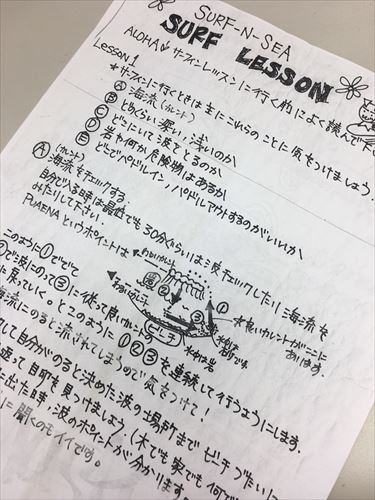 SURF-N-SEA
SURF LESSON
ALOHA サーフィンレッスンに行く前によく読んで下
Lesson 1
*サーフィンに行くときは主にこれらのことに気をつけましょう。
Ⓐ 海流(カレント)
Ⓑ どれくらい深い,浅いのか
Ⓒ どこにいて波をとるのか
Ⓓ 岩や何か危険物はあるか
Ⓔ どこでパドルイン,パドルアウトするのがいいか
Ⓐ (カレント)
海流をチェックする
自分で入る時は最低でも30分ぐらいは波チェックしたり海流を
みたりして下さい
PUAENAというポイントは
このように①でて
②で波にのって③に従って
に戻っていく。とこのように①②③を連続して行うようにします。
海流にのると流されてしまうので気をつけて!
して自分がのると決めた波の場所までビーチづたいに
返って目町を見つけましょう(木でも家でも何で
に出た時,波のポイントが分かります。
に聞くのもイイです。
ビーチ
① ② ③
水れは岩
*強いカレントがここに
あります。